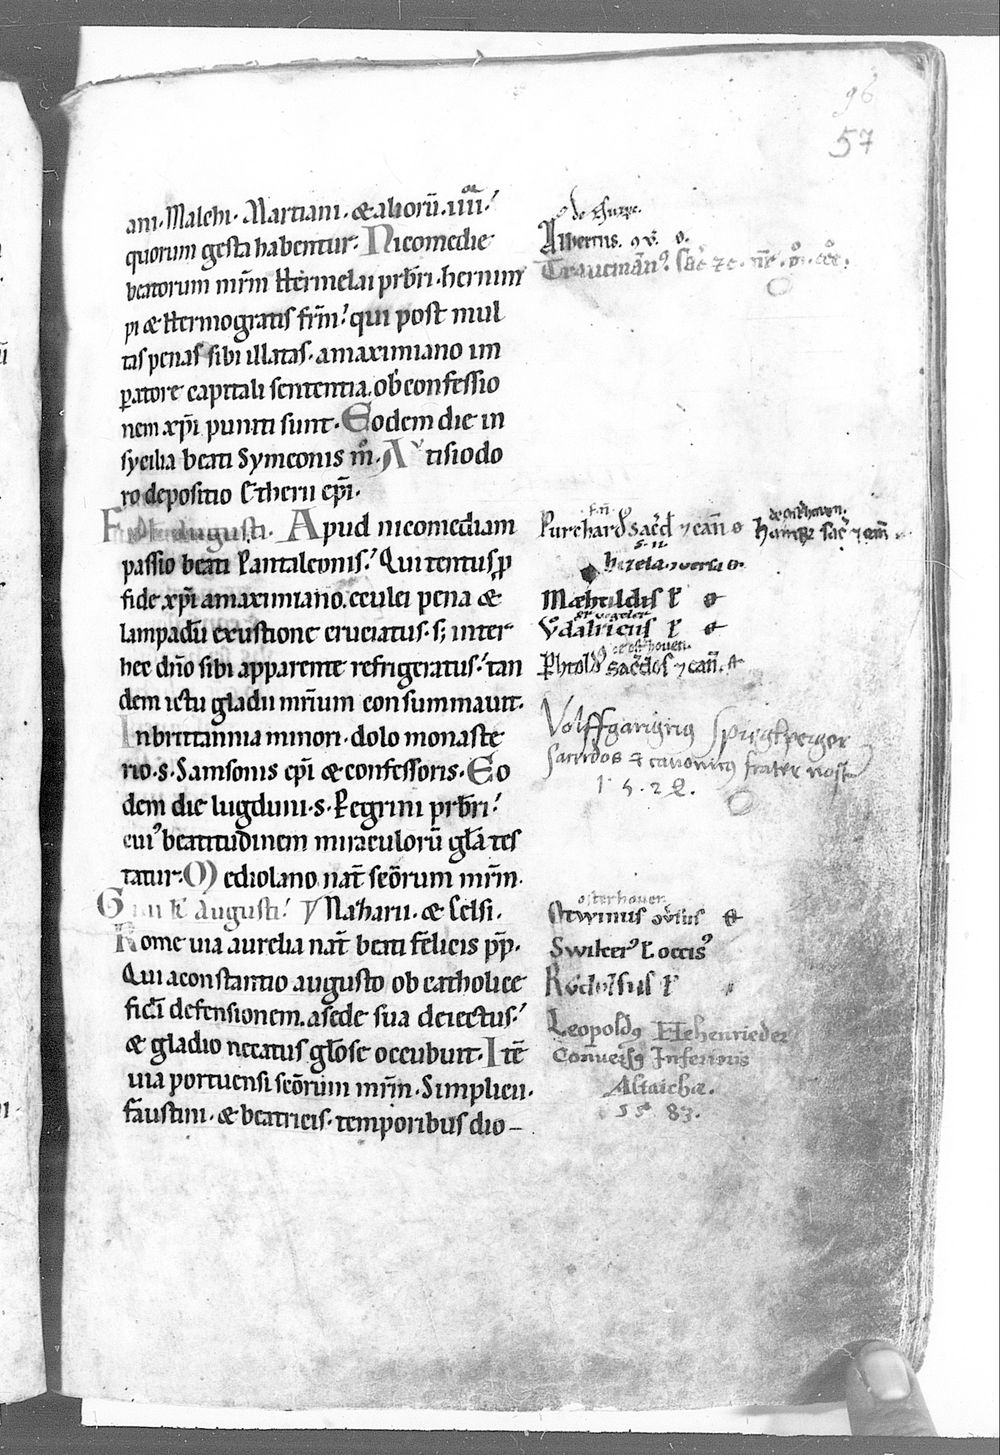 96
57
ani · Malchi · Martiani · & alioꝝ̃ · iiii ·
quorum gesta habentur · Nicomedie
beatorum mr̃m Hermelai prb̃ri · hermip
pi & Hermogratis fr̃m · qui post mul
tas penas sibi illatas · a maximiano im
ꝑatore capitali sententia · ob confessio
nem xp̃i puniti sunt · Eodem die in
sycilia beati Symeonis m̊ · Autisiodo
ro depositio Etherii ep̃i ·
F augusti · Apud nicomediam
passio beati Pantaleonis · Qui tentus ꝓ
fide xp̃i a maximiano · eculei pena &
lampadũ exustione cruciatus · s; inter
hec dño sibi apparente refrigeratus · tan
dem ictu gladii mr̃ium consummavit ·
In brittannia minori · dolo monaste
rio · s · Samsonis ep̃i & confessoris · Eo
dem die lugduni · s · Peregrini prb̃ri ·
cui' beatitudinem miraculorũ gl̃a tes
tatur · Mediolano nat̃ sc̃orum mr̃m ·
G iiii k̃l augusti · Nazharii · & Celsi ·
Rome via aurelia nat̃ beati felicis pp̃ ·
Qui a constantio augusto ob catholice
fidei defensionem · a sede sua deiectus ·
& gladio necatus gl̃ose occubuit · Itẽ
via portuensi sc̃orum mr̃m · Simplicii ·
faustini · & beatricis · temporibus dio-
Albertus · ɔv̊ · o ·
Purchard' sac̃d ⁊ cañ o
hizela · ɔversa o ·
Mæhtildis l̃ o
Ůdalricus l̃ o
osterhoven ·
sac̃dos ⁊ cañ ·
Volffgangus Spirgkperger
sacerdos & canonicus frater noster
1 5 2 2 .
osterhoven
Otwinus ɔv̊sus
Swiker' l̃ occis'
Růdolfus l̃
Leopold9 Hehenrieder
Convers9 Inferioris
Altaichæ .
15 83 .